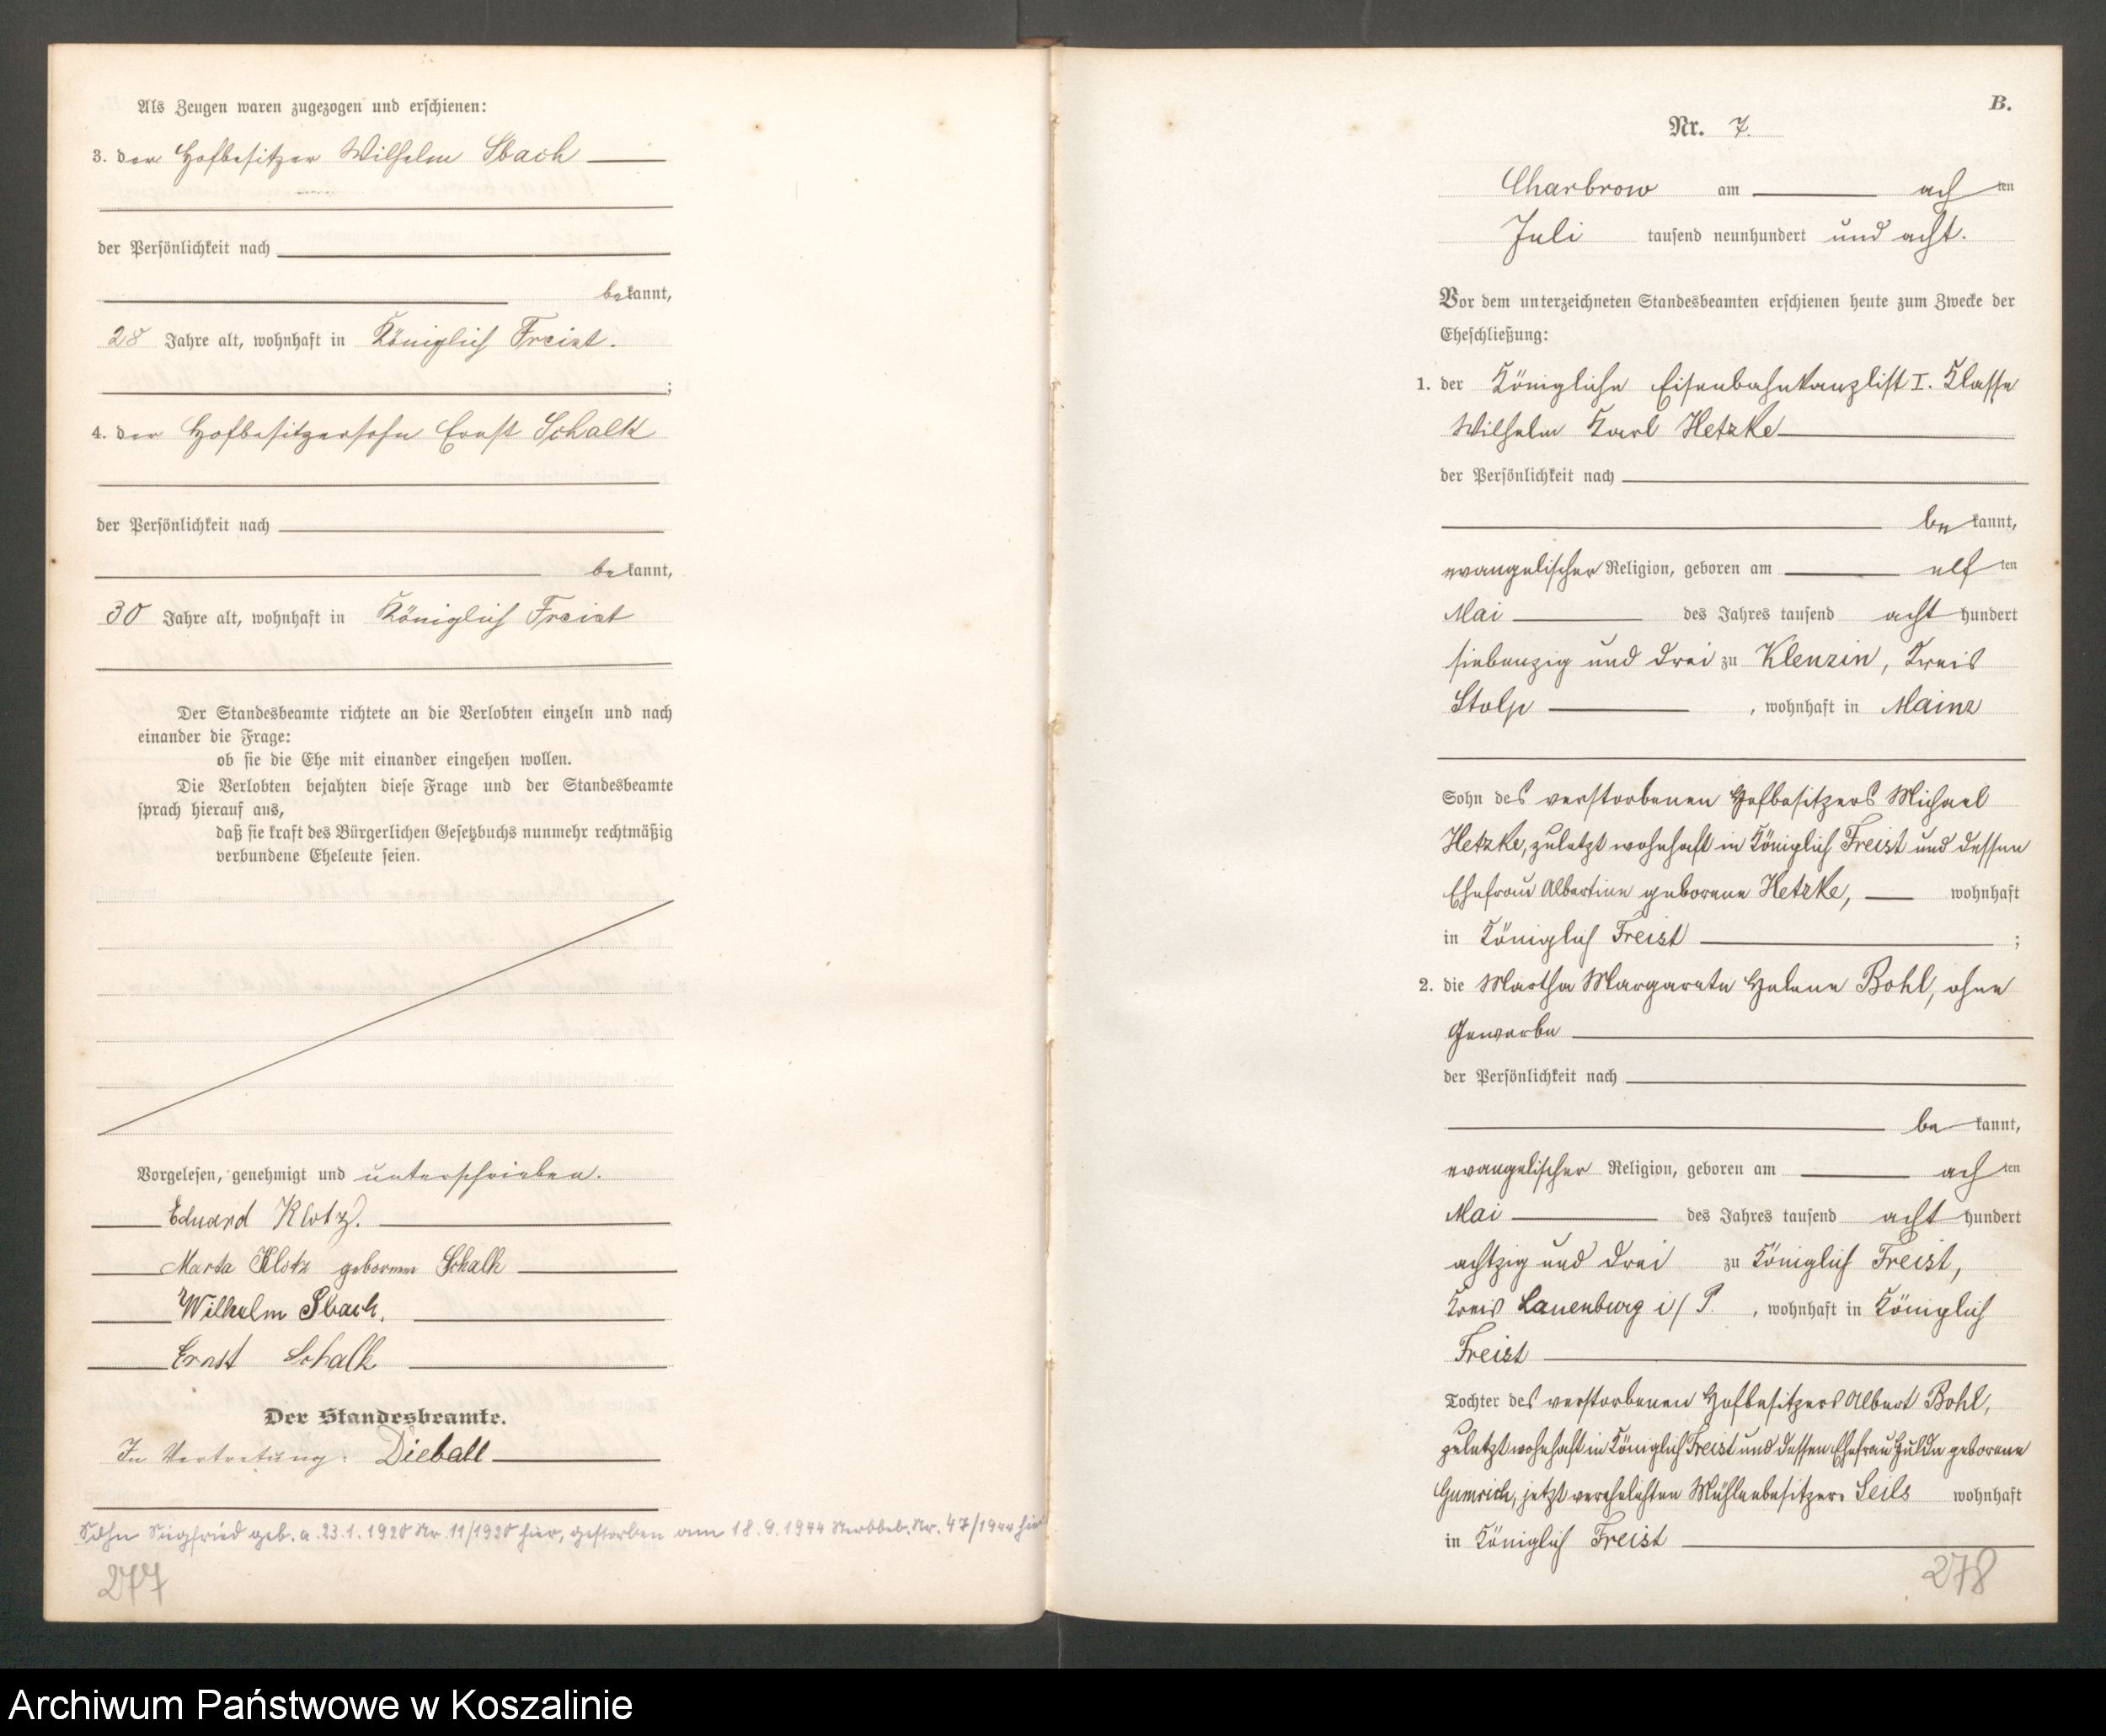 Als Zeugen waren zugezogen und erschienen:
3. der Hofbesitzer Wilhelm Sbach
der Persönlichkeit nach
bekannt,
28 Jahre alt, wohnhaft in Königlich Freist.
;
4. der Hofbesitzersohn Ernst Schalk
der Persönlichkeit nach
bekannt,
30 Jahre alt, wohnhaft in Königlich Freist
Der Standesbeamte richtete an die Verlobten einzeln und nach
einander die Frage:
ob sie die Ehe mit einander eingehen wollen.
Die Verlobten bejahten diese Frage und der Standesbeamte
sprach hierauf aus,
daß sie kraft des Bürgerlichen Gesetzbuchs nunmehr rechtmäßig
verbundene Eheleute seien.
Vorgelesen, genehmigt und unterschrieben.
Eduard Klotz.
Marta Klotz geborene Schalk
Wilhelm Sbach.
Ernst Schalk
Der Standesbeamte.
In Vertretung: Dieball
Sohn Siegfried geb. a. 23.1.1920 Nr. 11/1920 hier, gestorben am 18.9.1944 Sterbeb. Nr. 47/1944 hier
277
B.
Nr. 7.
Charbrow am achten
Juli tausend neunhundert und acht.
Vor dem unterzeichneten Standesbeamten erschienen heute zum Zwecke der
Eheschließung:
1. der Königliche Eisenbahnkanzlist I. Klasse
Wilhelm Karl Hetzke
der Persönlichkeit nach
bekannt,
evangelischer Religion, geboren am elften
Mai des Jahres tausend achthundert
siebenzig und drei zu Klenzin, Kreis
Stolp, wohnhaft in Mainz
Sohn des verstorbenen Hofbesitzers Michael
Hetzke, zuletzt wohnhaft in Königlich Freist und dessen
Ehefrau Albertine geborene Hetzke, wohnhaft
in Königlich Freist ;
2. die Martha Margarete Helene Bohl, ohne
Gewerbe
der Persönlichkeit nach
bekannt,
evangelischer Religion, geboren am achten
Mai des Jahres tausend achthundert
achtzig und drei zu Königlich Freist,
Kreis Lauenburg i/P., wohnhaft in Königlich
Freist
Tochter des verstorbenen Hofbesitzers Albert Bohl,
zuletzt wohnhaft in Königlich Freist und dessen Ehefrau Hulda geborene
Gumrich, jetzt verehelichten Mühlenbesitzer Seils wohnhaft
in Königlich Freist
278
Archiwum Państwowe w Koszalinie